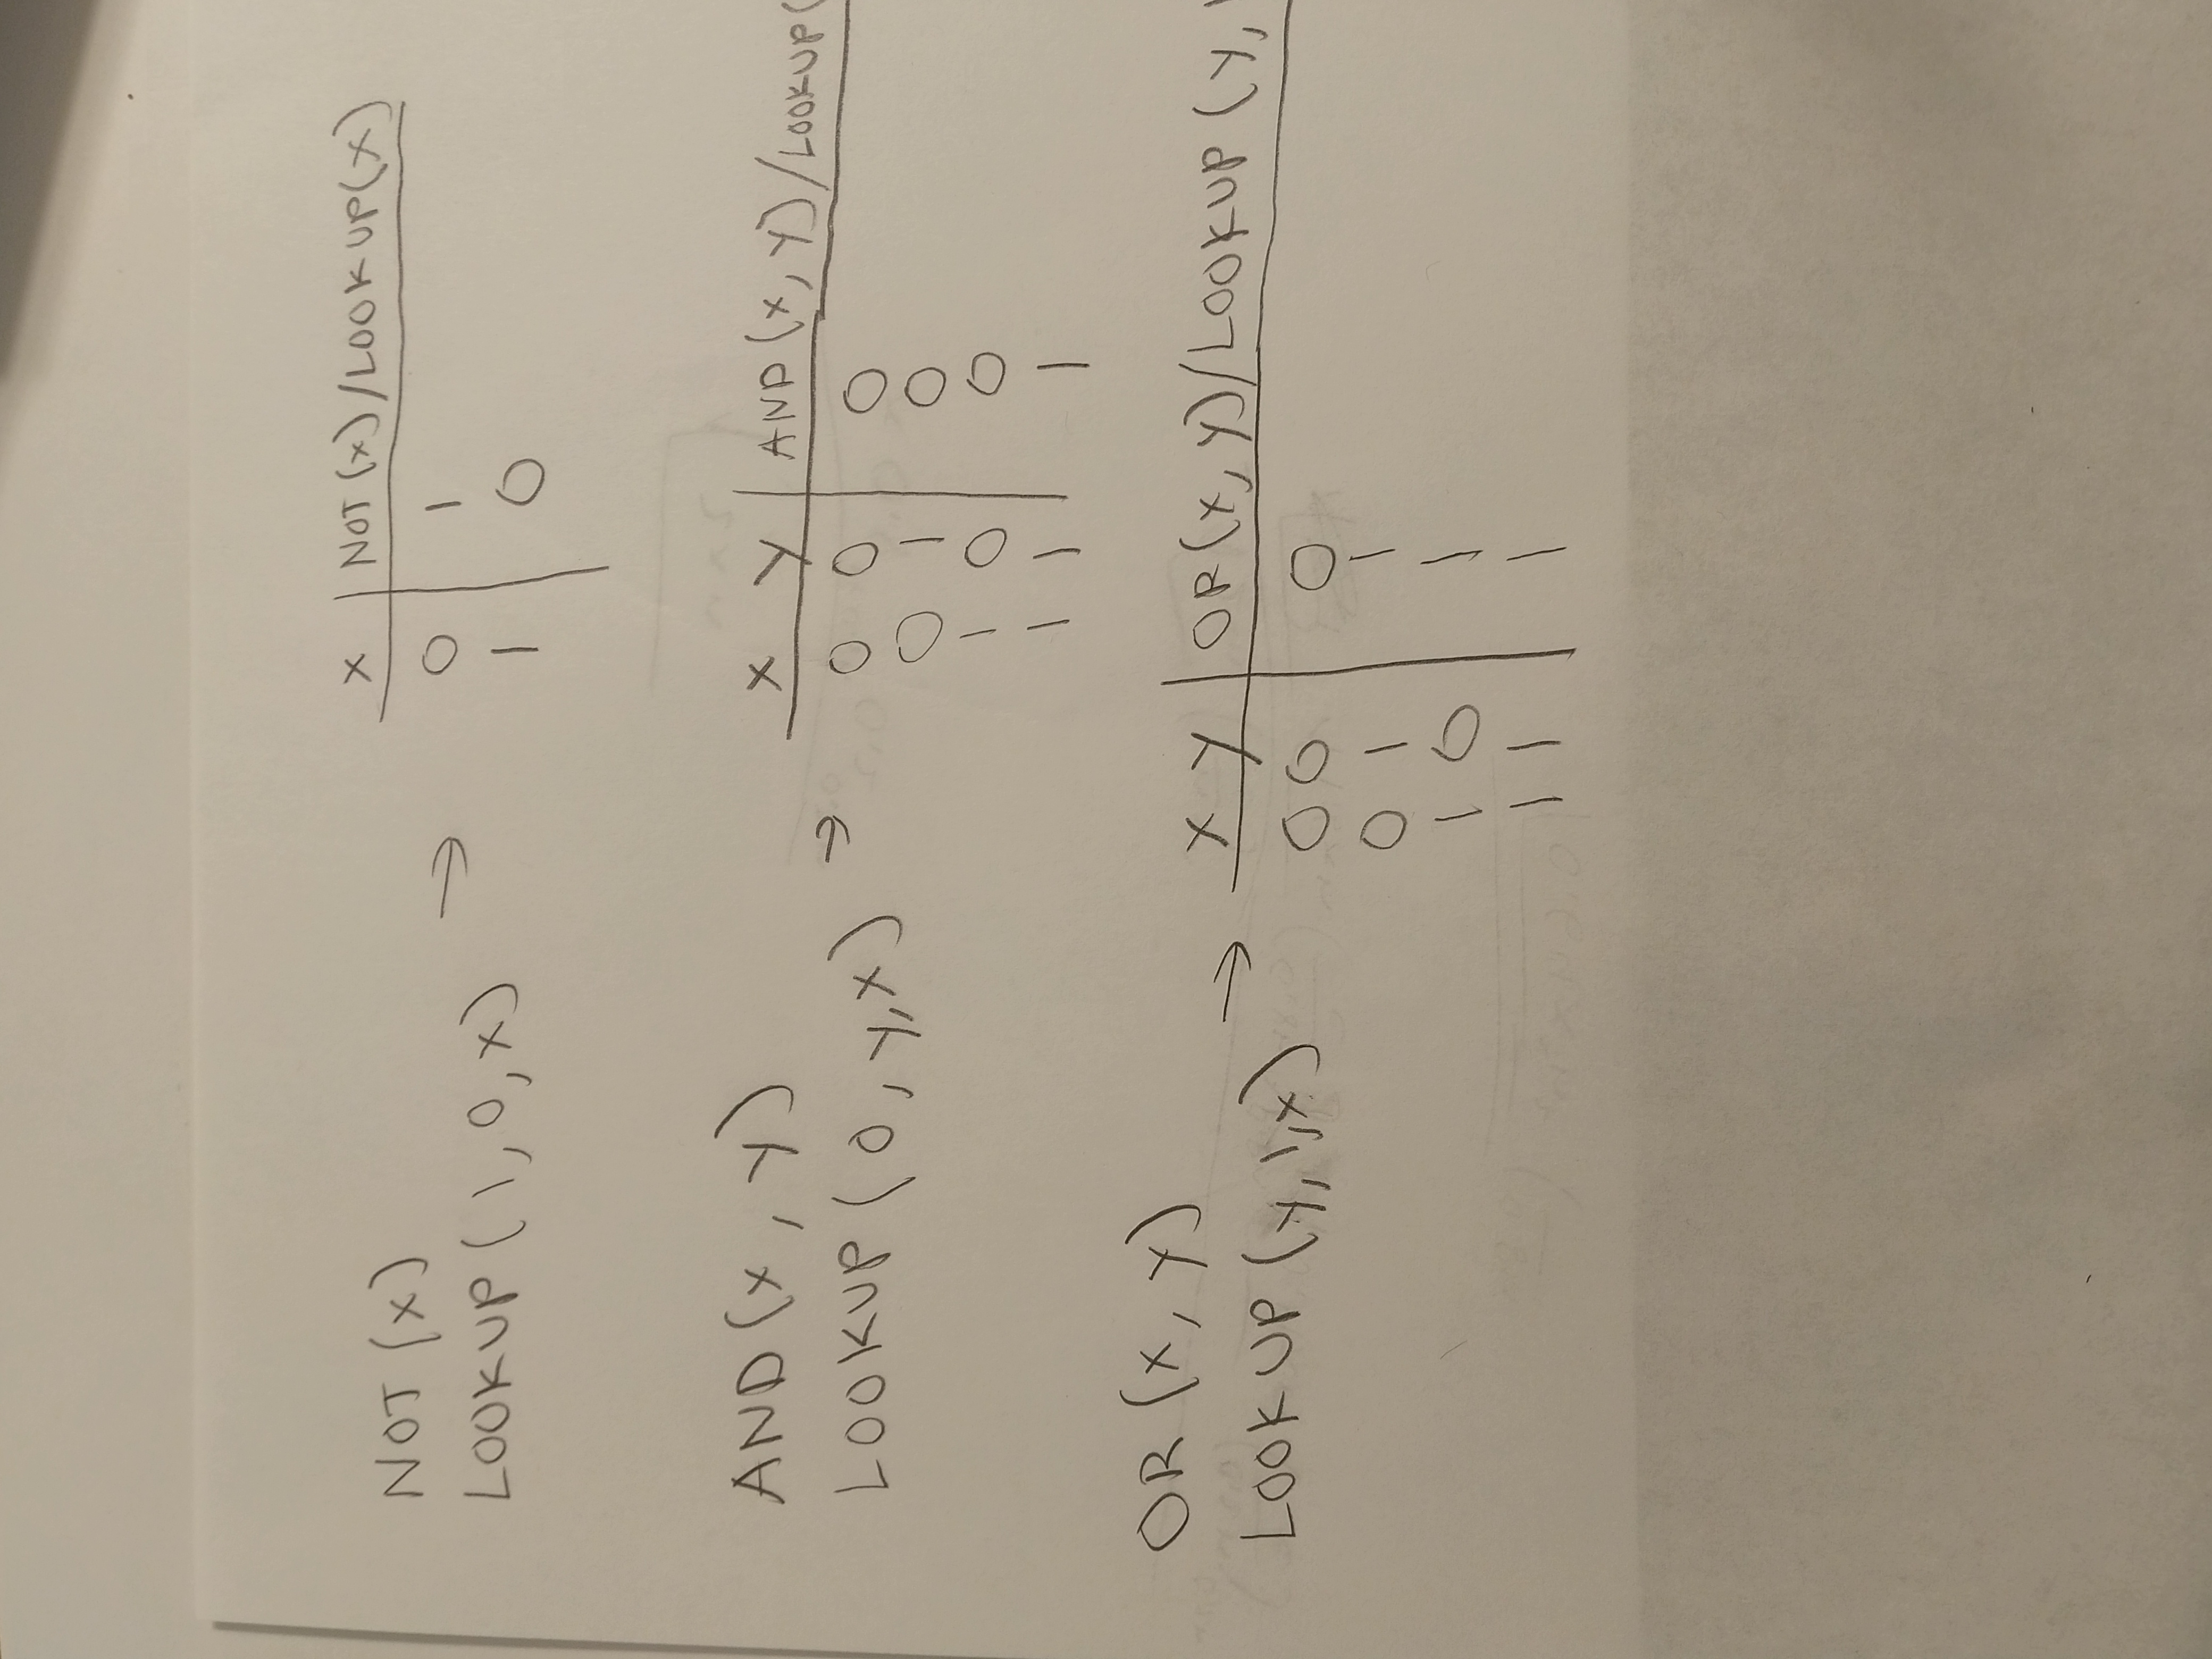 NOT (x)
LOOKUP (1, 0, x)
→
x | NOT (x) / LOOKUP(x)
0 | 1
1 | 0
AND (x, y)
LOOKUP (0, y, x)
→
x y | AND (x, y) / LOOKUP(
0 0 | 0
0 1 | 0
1 0 | 0
1 1 | 1
OR (x, y)
LOOKUP (y, 1, x)
→
x y | OR (x, y) / LOOKUP (y,
0 0 | 0
0 1 | 1
1 0 | 1
1 1 | 1